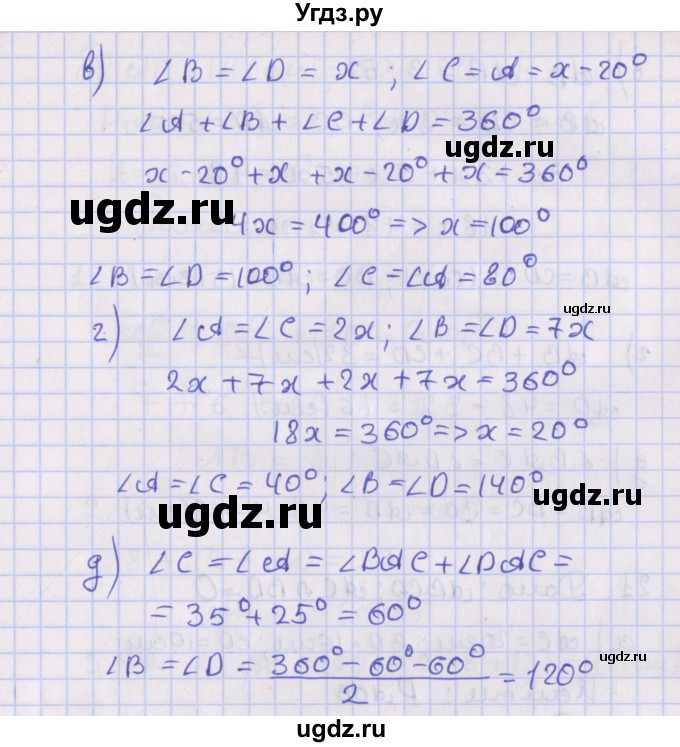 Угдз.ру
в) ∠B = ∠D = x ; ∠C = ∠A = x - 20°
∠A + ∠B + ∠C + ∠D = 360°
ugdz.ru
x - 20° + x + x - 20° + x = 360°
ugdz.ru
4x = 400° => x = 100°
∠B = ∠D = 100° ; ∠C = ∠A = 80°
ugdz.ru
г) ∠A = ∠C = 2x ; ∠B = ∠D = 7x
2x + 7x + 2x + 7x = 360°
18x = 360° => x = 20°
∠A = ∠C = 40° ; ∠B = ∠D = 140°
ugdz.ru
ugdz.ru
д) ∠C = ∠A = ∠BAC + ∠DAC =
= 35° + 25° = 60°
∠B = ∠D = 360° - 60° - 60° / 2 = 120°
ugdz.ru
ugdz.ru